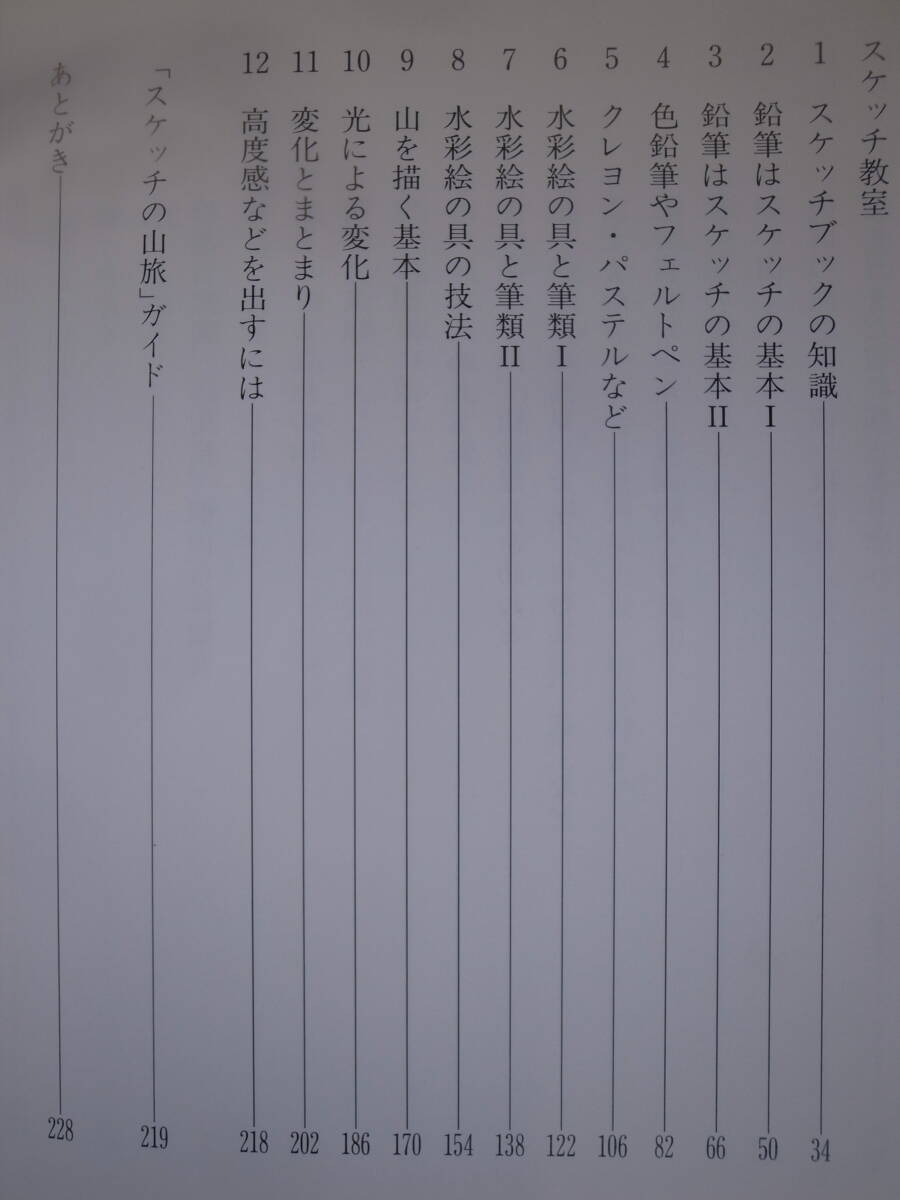 スケッチ教室
1 スケッチブックの知識 34
2 鉛筆はスケッチの基本Ⅰ 50
3 鉛筆はスケッチの基本Ⅱ 66
4 色鉛筆やフェルトペン 82
5 クレヨン・パステルなど 106
6 水彩絵の具と筆類Ⅰ 122
7 水彩絵の具と筆類Ⅱ 138
8 水彩絵の具の技法 154
9 山を描く基本 170
10 光による変化 186
11 変化とまとまり 202
12 高度感などを出すには 218
「スケッチの山旅」ガイド 219
あとがき 228